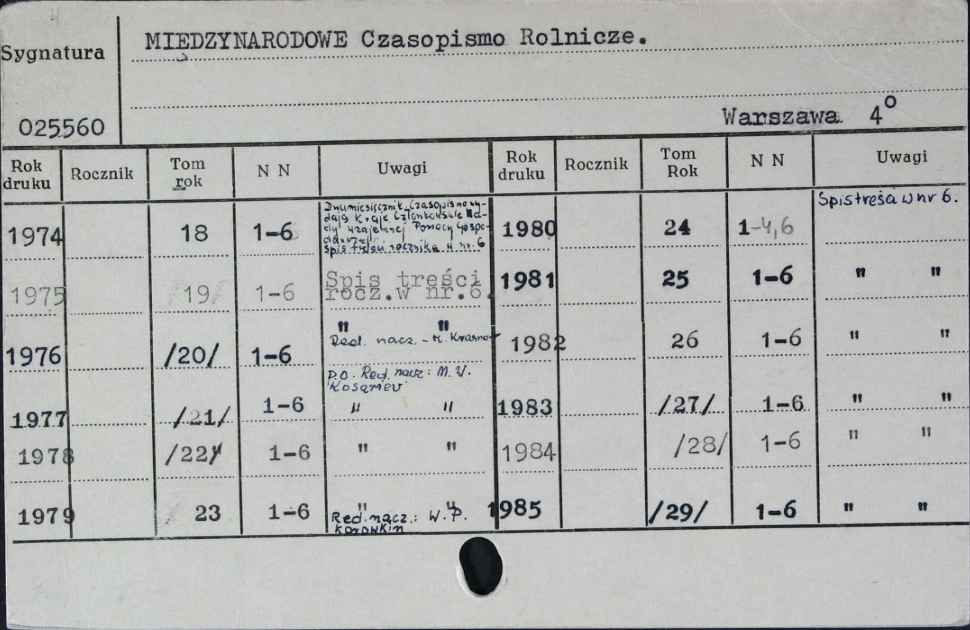 Sygnatura
MIĘDZYNARODOWE Czasopismo Rolnicze.
025560
Warszawa 4°
Rok druku Rocznik Tom rok N N Uwagi Rok druku Rocznik Tom Rok N N Uwagi
1974 18 1-6
Dwumiesięcznik. Czasopismo wy-
dają Kraje Członkowskie Rad-
y Wzajemnej Pomocy Gospo-
darczej.
Spis treści rocznika w nr. 6
1980 24 1-4,6 Spis treści w nr 6.
1975 19 1-6 Spis treści
rocz.w nr.6.
1981 25 1-6 " "
1976 /20/ 1-6 " "
Red. nacz. - M.
1982 26 1-6 " "
p.o. Red. nacz: M. V.
Kosariev
1977 /21/ 1-6 " " 1983 /27/ 1-6 " "
1978 /22/ 1-6 " " 1984 /28/ 1-6 " "
1979 23 1-6 " "
Red. nacz.: W. P.
Korowkin
1985 /29/ 1-6 " "